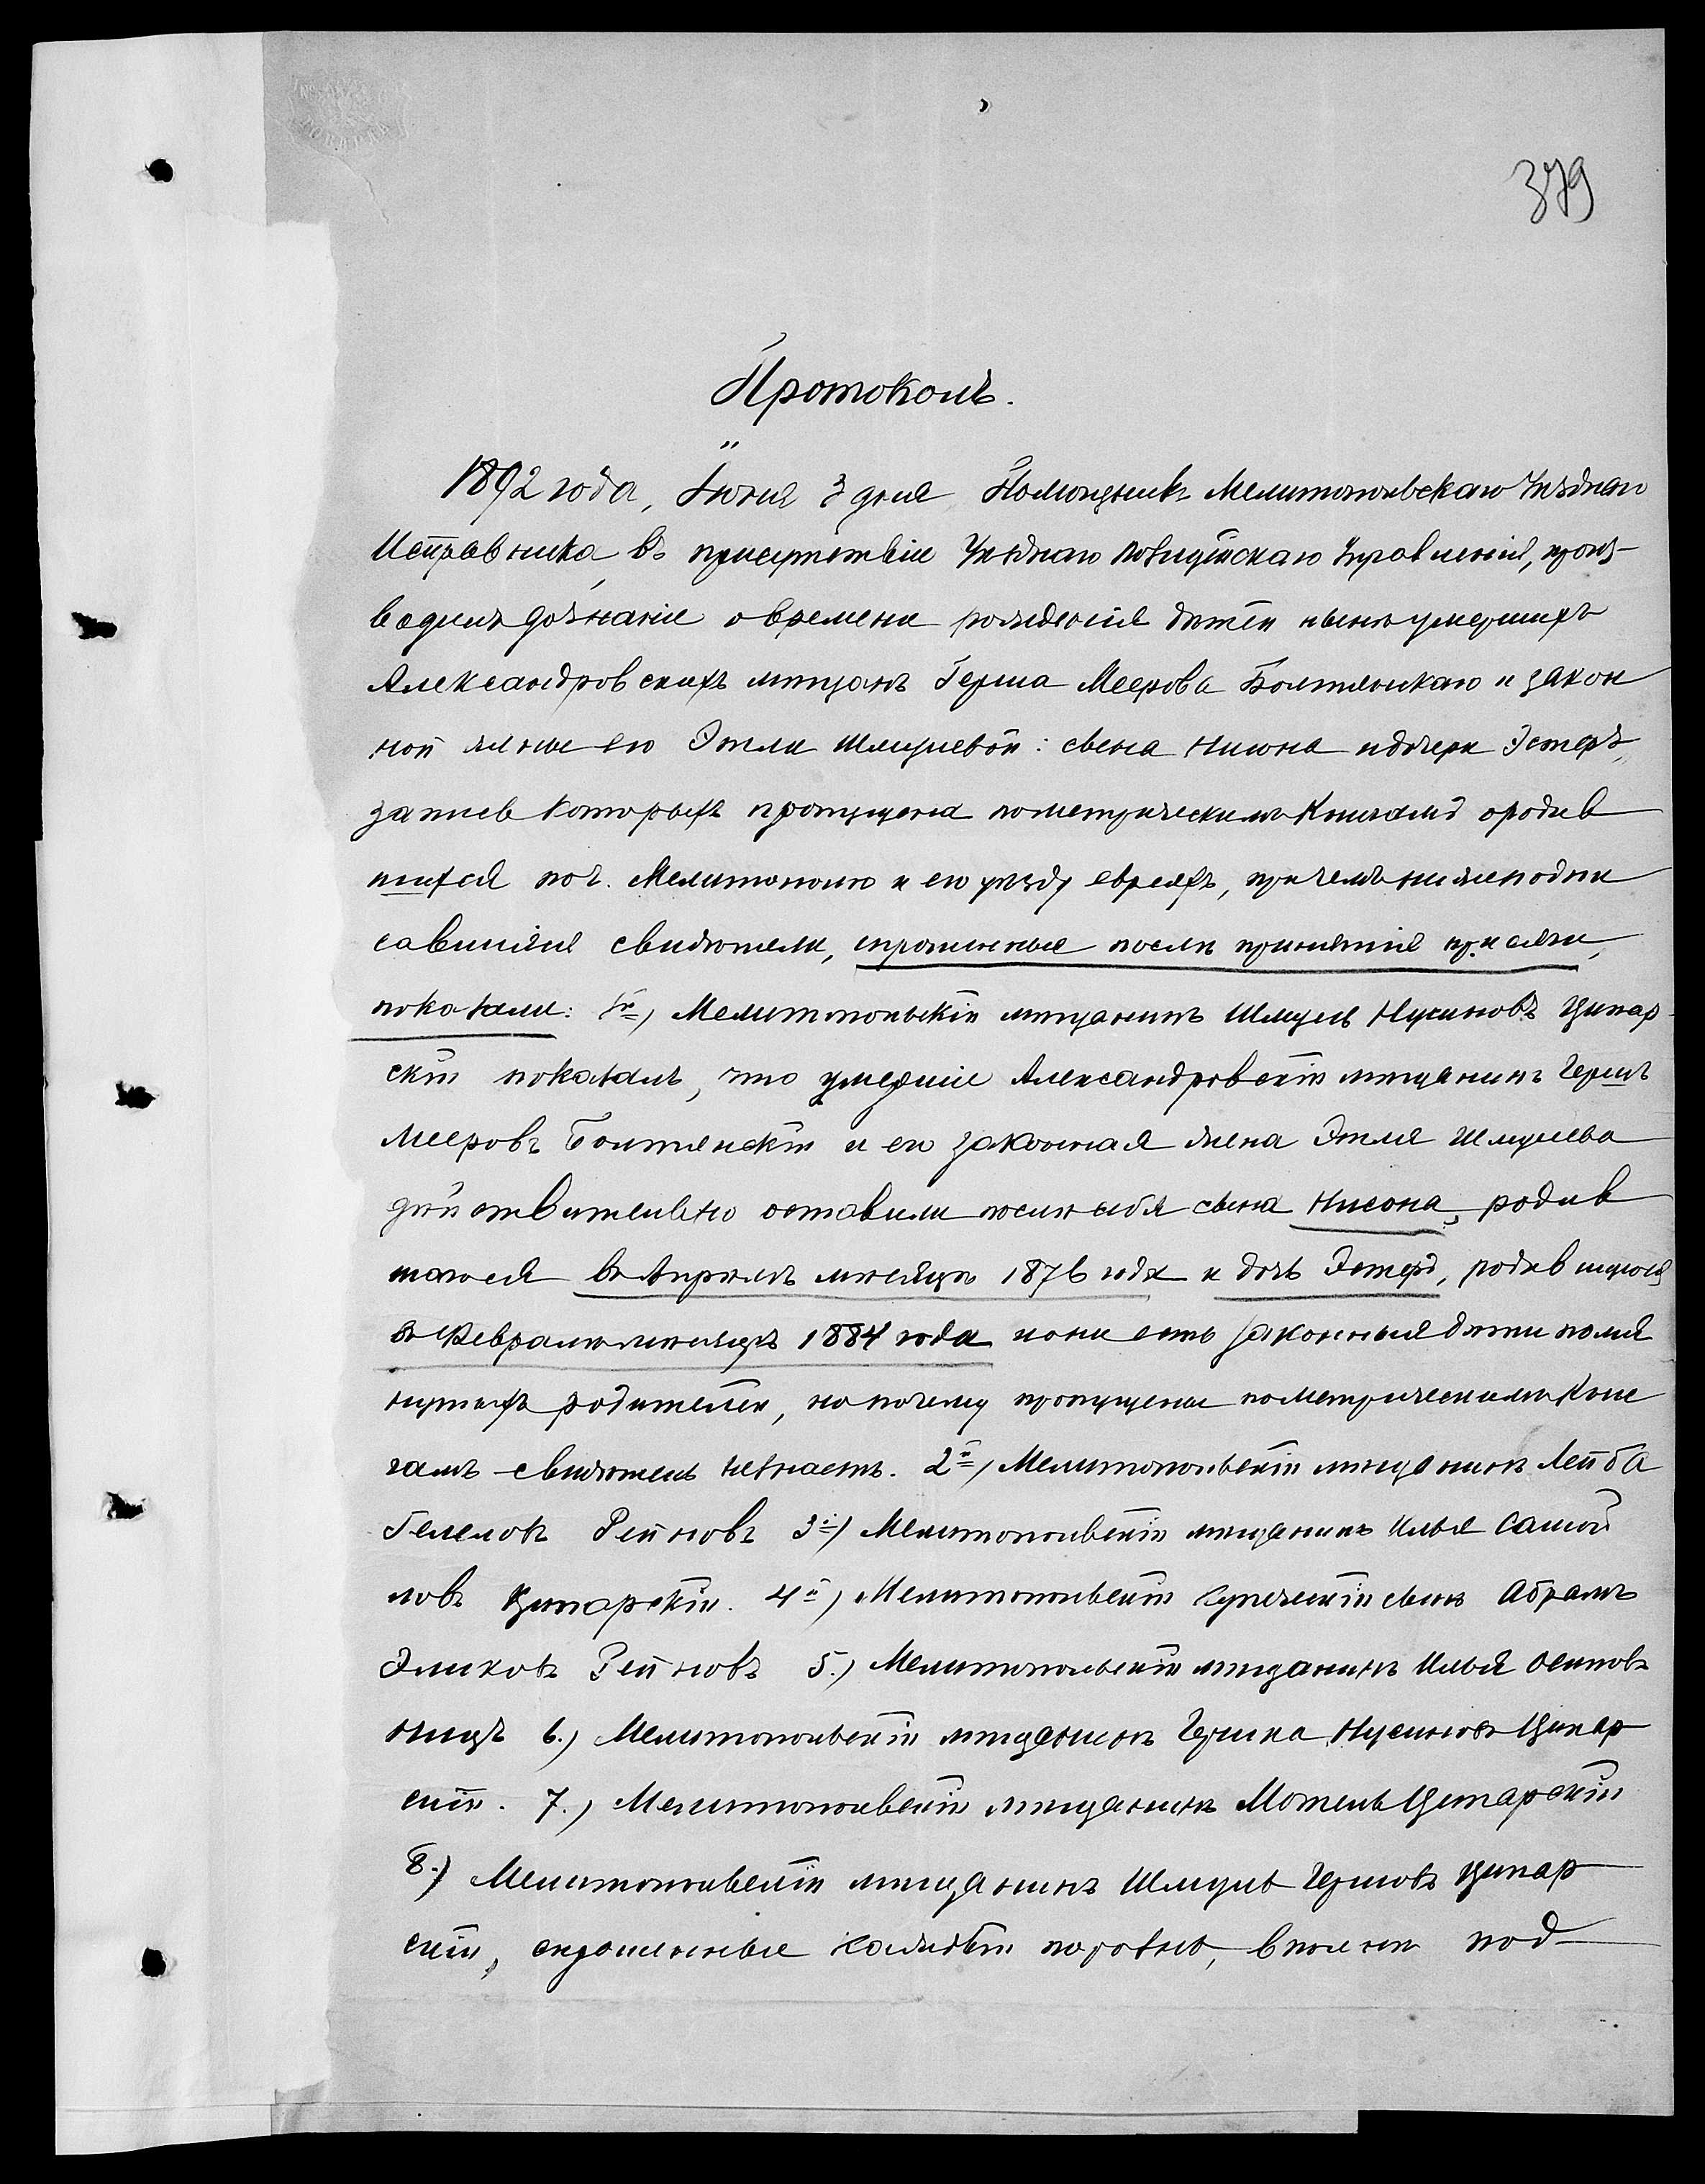 379
Протоколъ.
1892 года, Іюня 3 дня Помощникъ Мелитопольскаго Уѣзднаго
Исправника, въ присутствіи Уѣзднаго Полицейскаго Управленія, произ-
водилъ дознаніе о времени рожденія дѣтей нынѣ умершихъ
Александровскихъ мѣщанъ Герша Меерова Болтянскаго и закон
ной жены его Этли Шмулевой: сына Нисона и дочери Эстеръ,
запись которыхъ пропущена по метрическимъ книгамъ о родив
шихся по г. Мелитополю и его уѣзду евреяхъ, при чемъ нижеподпи
савшіеся свидѣтели, спрошенные послѣ принятія присяги,
показали: 1й) Мелитопольскій мѣщанинъ Шмуль Нусиновъ Ципар-
скій показалъ, что умершіе Александровскій мѣщанинъ Гершъ
Мееровъ Болтянскій и его законная жена Этля Шмулева
дѣйствительно оставили послѣ себя сына Нисона, родив
шагося въ Апрѣлѣ мѣсяцѣ 1876 года и дочь Эстеръ, родившуюся
въ Февралѣ мѣсяцѣ 1884 года и они есть законныя дѣти помя
нутыхъ родителей, но почему пропущены по метрическимъ кни
гамъ свидѣтель не знаетъ. 2й) Мелитопольскій мѣщанинъ Лейба
Гемеловъ Рейновъ 3й) Мелитопольскій мѣщанинъ Илья Самой
ловъ Ципарскій. 4й) Мелитопольскій купеческій сынъ Абрамъ
Эликовъ Рейновъ 5.) Мелитопольскій мѣщанинъ Илья Осиповъ
6.) Мелитопольскій мѣщанинъ Гершка Нусиновъ Ципар
скій. 7.) Мелитопольскій мѣщанинъ Мотель Ципарскій
8.) Мелитопольскій мѣщанинъ Шмуль Гершовъ Ципар
скій, спрошенные каждый порознь, вполнѣ под